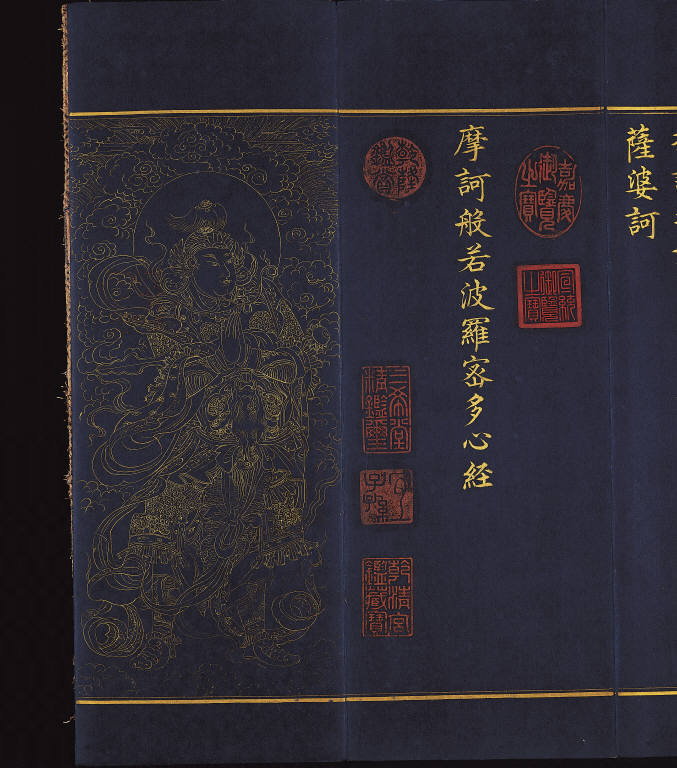 薩婆訶
嘉慶御覽之寶
宣統御覽之寶
摩訶般若波羅宻多心経
乾隆鑑賞
三希堂精鑑璽
宜子孫
乾清宮鑑藏寶